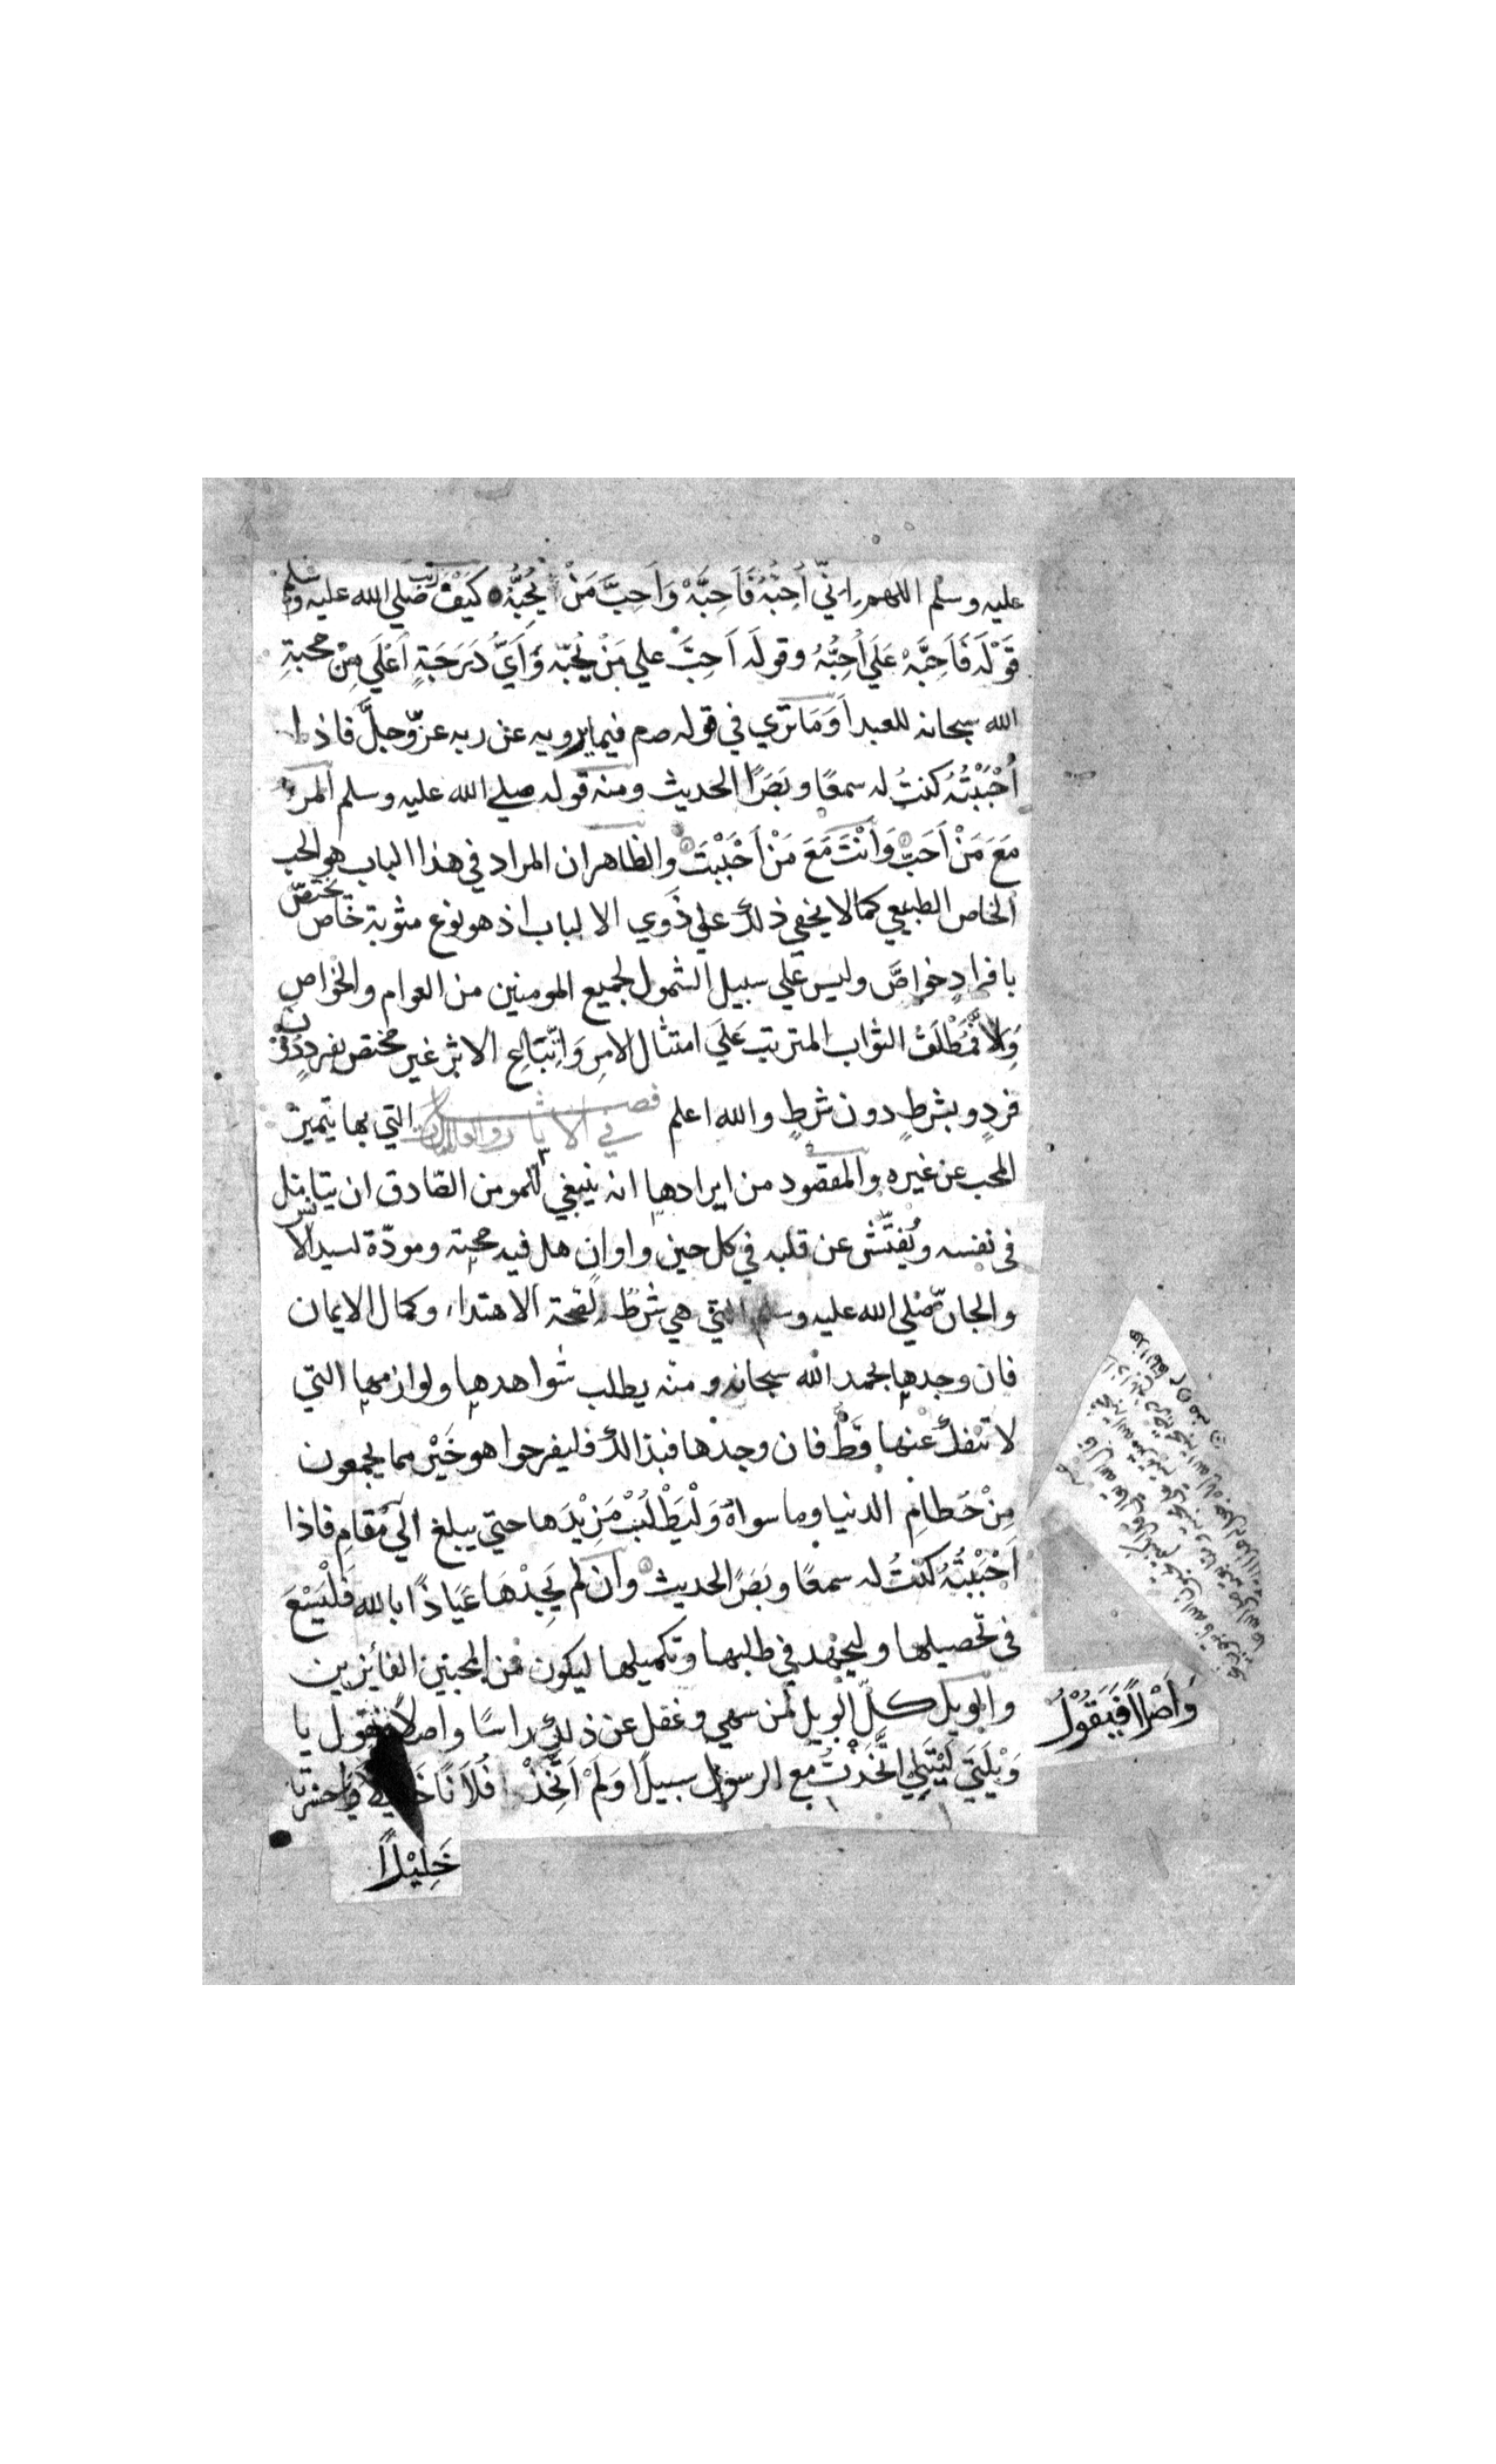 عليه وسلم اللهم اِنّي أُحِبُّهُ فَاَحِبَّهْ وَاَحِبَّ مَنْ يُحِبُّهُ كَيْفَ رتب صَلي الله عليه وسلم
قَوْلَه فَاَحِبَّهْ عَلَي أُحِبُّهُ وقولَه اَحِبَّ علي مَنْ يُحِبّه وَأَيُّ دَرَجَةٍ اَعْلَي مِنْ محبةِ
الله سبحانه للعبد اَوَمَا تَرَي في قوله صم فيما يرويه عن ربه عزّ وجلَّ فاذا
أَحْبَبْتُهُ كنتُ له سمعًا وبَصَرًا الحديث ومنه قوله صلي الله عليه وسلم المرء
مَعَ مَنْ اَحَبَّ وَاَنْتَ مَعَ مَنْ اَحْبَبْتَ والظاهر ان المراد في هذا الباب هو الحب
الخاص الطبيعي كما لا يخفي ذلك علي ذَوي الالباب اذ هو نوع مثوبة خاص يختصّ
بافرادٍ خواصَّ وليس عَلي سبيل الشمول لجميع المومنين من العوام والخواصِ
وَاِلَّا فمُطْلَقُ الثواب المترتب عَلَي امتثال الامرِ وَاتِّبَاعِ الاثرِ غير مختص بفردٍ دُوْنَ
فردٍ وبشرطٍ دون شرطٍ والله اعلم فصــل في الاثار والعلامات التي بها يتميز
المحب عن غيره والمقصود من ايرادها انه ينبغي للمومن الصّادق ان يتامل
في نفسه ويُفتّش عن قلبه في كل حين واوانٍ هل فيه محبة ومودّة لسيد الانس
والجانّ صَلي الله عليه وسلم التي هي شرطٌ لصحة الاهتداء وكمال الايمان
فان وجدها بحمد الله سبحانه ومنه يطلب شواهدها ولوازمها التي
لا تنفك عنها قَطُّ فان وجدها فبذالك فليفرحوا هو خَيْر مما يجمعون
مِنْ حُطامِ الدنيا وما سواهُ وَلْيَطْلُبْ مَزِيْدَها حتي يبلغ الي مَقامِ فاذا
اَحْبَبْتُهُ كنتُ له سمعًا وبَصَرًا الحديث وان لم يَجِدْهَا عَيَاذًا بالله فَلْيَسْعَ
في تحصيلها وليجهد في طلبها وتكميلها ليكون من المحبين الفائزين
والويل كلّ الويل لمن سهي وغفل عن ذلك راسًا واصلًا فيقول يا
وَيْلَتَي لَيْتَنِي اتَّخَذْتُ مع الرسول سبيلًا وَلَمْ اَتَّخِذْ فُلَانًا خليلًا
وَاَصْلًا فَيَقُوْلُ
خَلِيْلًا